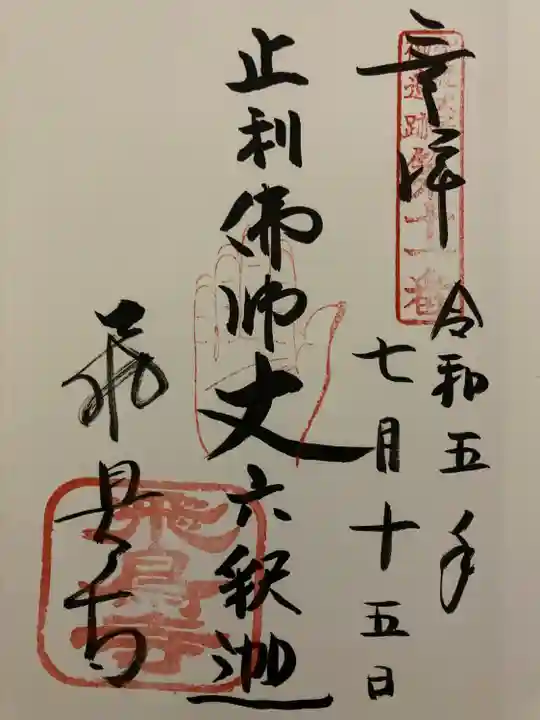 奉拝
令和五年
七月十五日
止利佛師丈六釈迦
飛鳥寺
御遺跡第十一番
飛鳥寺